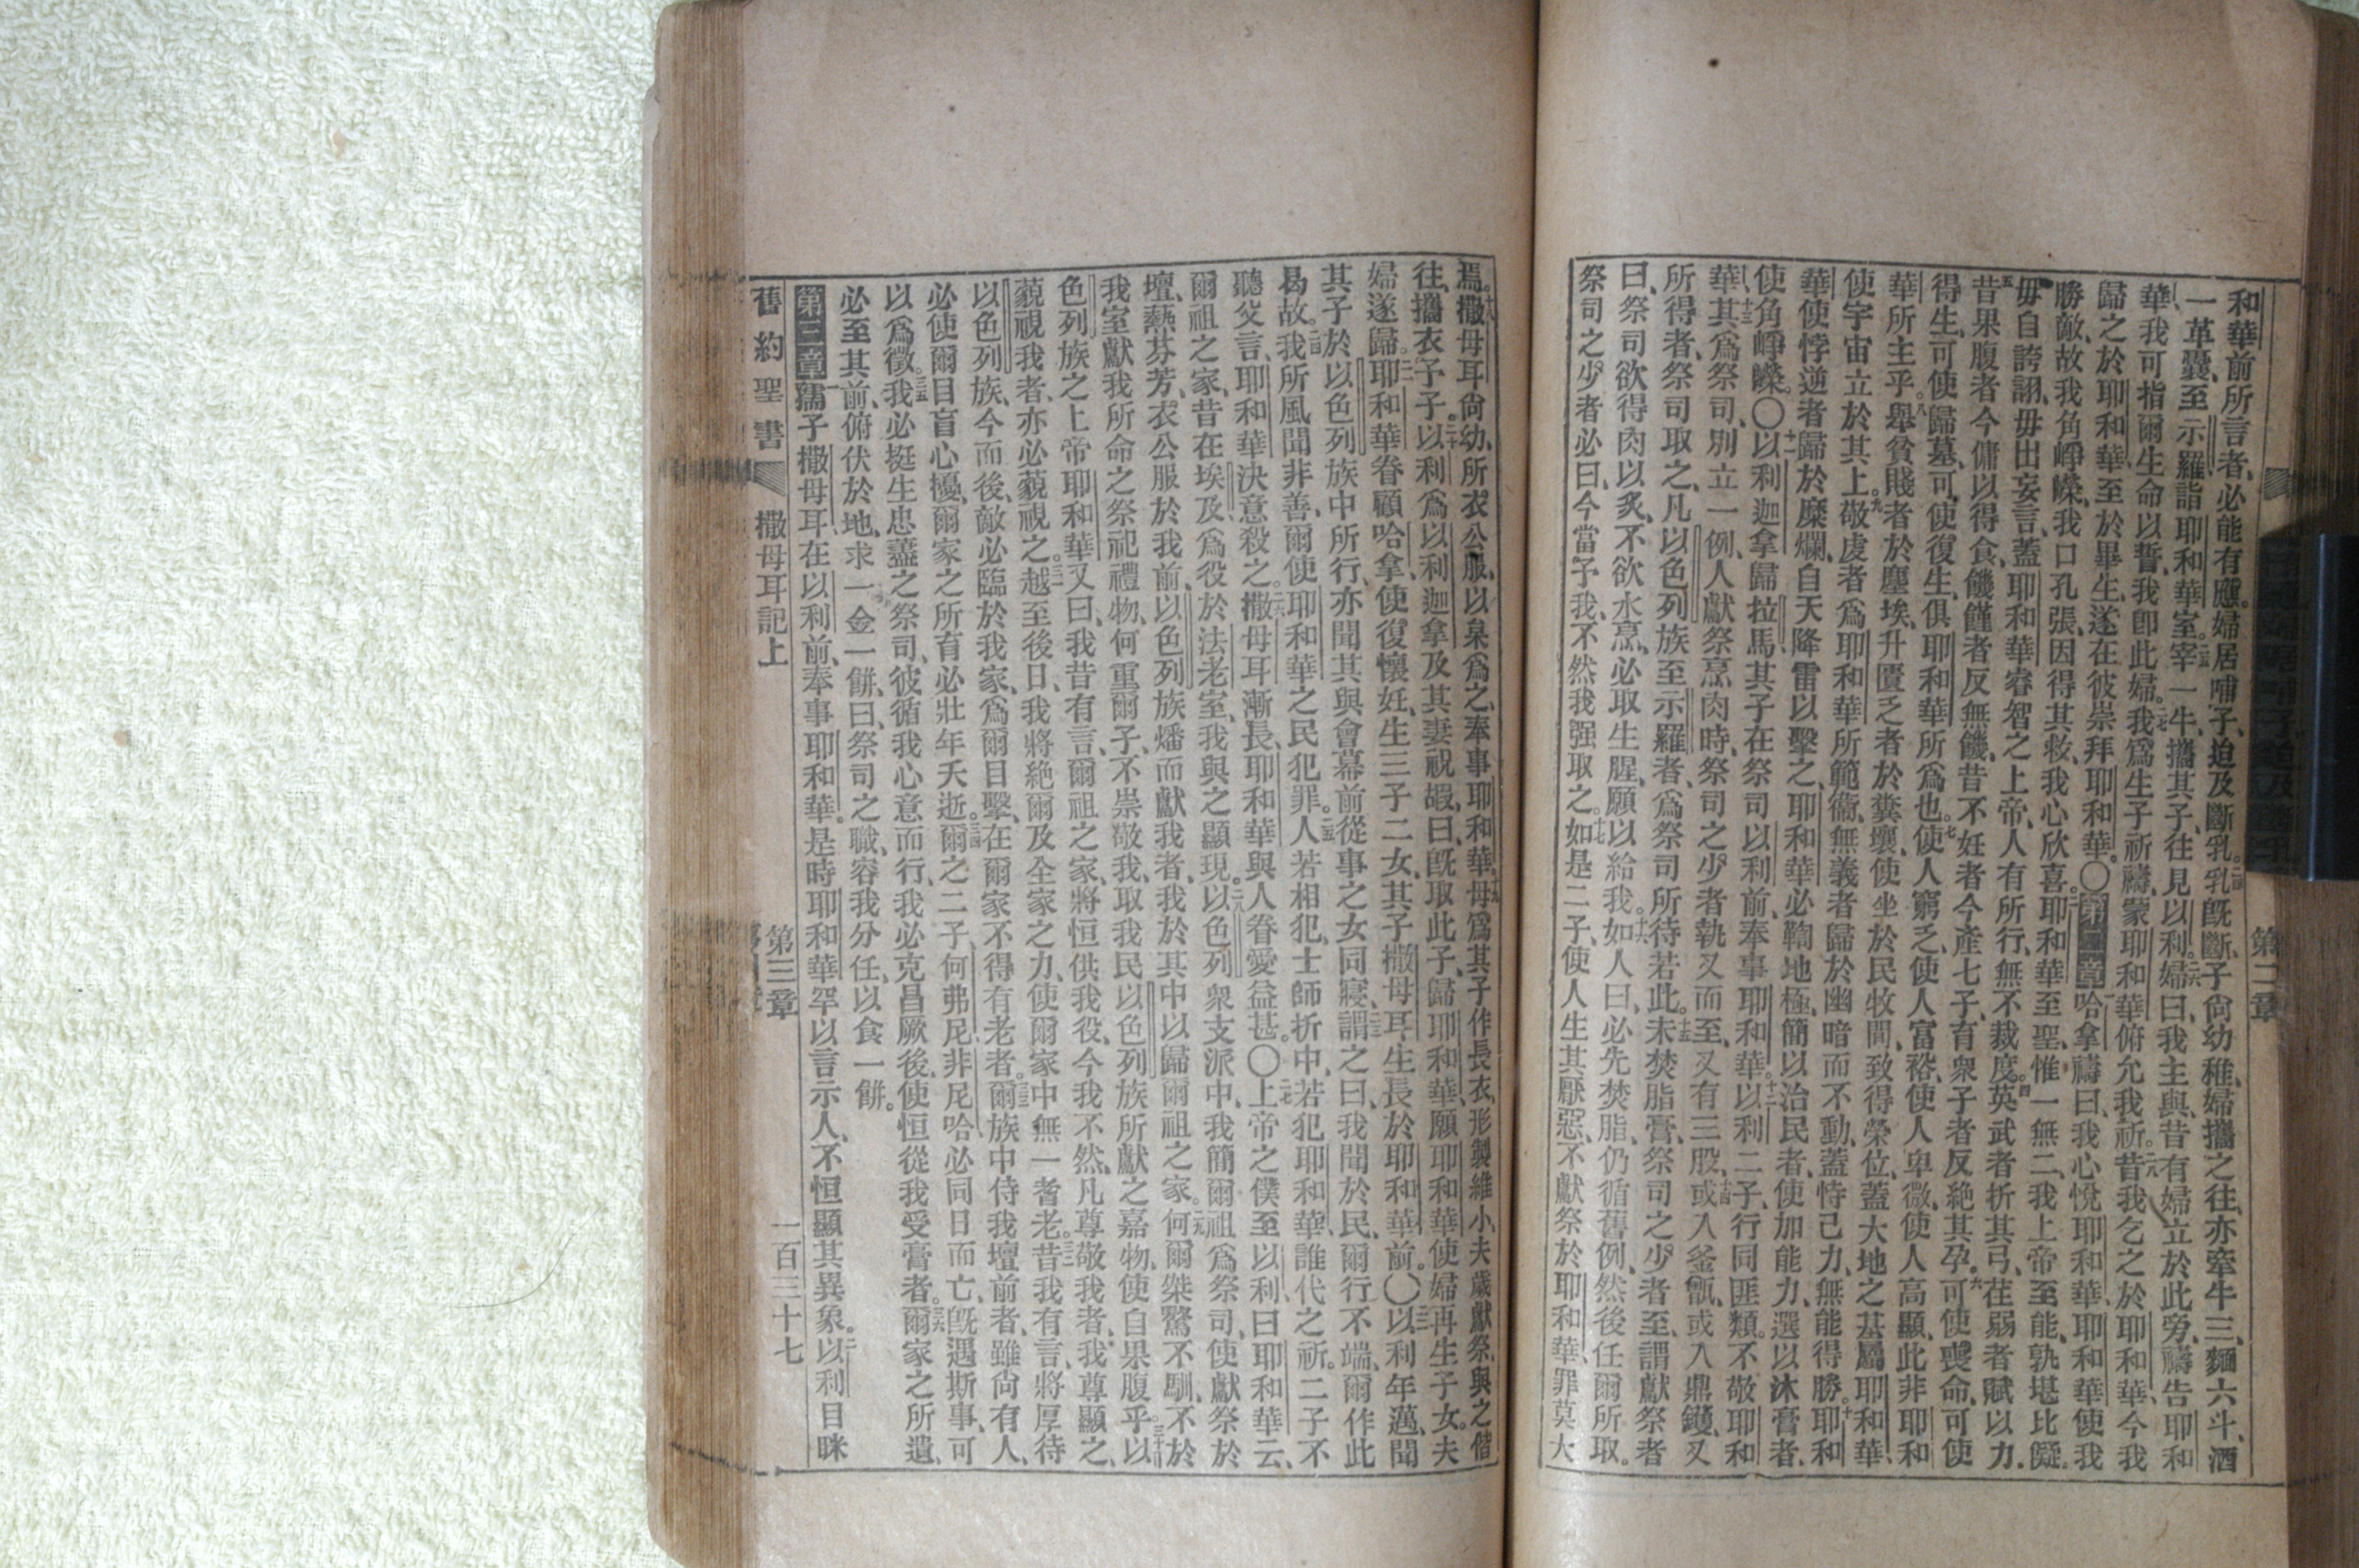 第二章
和華前所言者、必能有應。婦居哺子、迨及斷乳。二四乳旣斷、子尙幼稚、婦攜之往、亦牽牛三、麵六斗、酒
一革囊、至示羅詣耶和華室。二五宰一牛、攜其子、往見以利。二六婦曰、我主與、昔有婦立於此旁、禱告耶和
華、我可指爾生命以誓、我卽此婦。二七我爲生子祈禱、蒙耶和華俯允我祈。二八昔我乞之於耶和華、今我
歸之於耶和華、至於畢生、遂在彼崇拜耶和華。〇第二章一哈拿禱曰、我心悅耶和華、耶和華使我
勝敵、故我角崢嶸、我口孔張、因得其救、我心欣喜。二耶和華至聖、惟一無二、我上帝至能、孰堪比儗。三
毋自誇詡、毋出妄言、蓋耶和華睿智之上帝、人有所行、無不裁度。四英武者折其弓、荏弱者賦以力。
五昔果腹者今傭以得食、饑饉者反無饑、昔不妊者今產七子、育衆子者反絕其孕。六可使喪命、可使
得生、可使歸墓、可使復生、俱耶和華所爲也。七使人窮乏、使人富裕、使人卑微、使人高顯、此非耶和
華所主乎。八舉貧賤者於塵埃、升匱乏者於糞壤、使坐於民牧間、致得榮位、蓋大地之基屬耶和華、
使宇宙立於其上。九敬虔者爲耶和華所範衞、無義者歸於幽暗而不動、蓋恃己力、無能得勝。十耶和
華使悖逆者歸於糜爛、自天降雷以擊之、耶和華必鞫地極、簡以治民者、使加能力、選以沐膏者、
使角崢嶸。〇十一以利迦拿歸拉馬、其子在祭司以利前、奉事耶和華。十二以利二子、行同匪類。不敬耶和
華。十三其爲祭司、別立一例、人獻祭烹肉時、祭司之少者執叉而至、叉有三股、十四或入釜甑、或入鼎鑊、叉
所得者、祭司取之、凡以色列族至示羅者、爲祭司所待若此。十五未焚脂膏、祭司之少者至、謂獻祭者
曰、祭司欲得肉以炙、不欲水烹、必取生腥、願以給我。十六如人曰、必先焚脂、仍循舊例、然後任爾所取。
祭司之少者必曰、今當予我、不然我强取之。十七如是二子、使人生其厭惡、不獻祭於耶和華、罪莫大
焉。十八撒母耳尙幼、所衣公服、以枲爲之、奉事耶和華。十九母爲其子作長衣、形製維小、夫歲獻祭、與之偕
往、攜衣予子。二十以利爲以利迦拿及其妻祝嘏、曰、旣取此子、歸耶和華、願耶和華使婦再生子女。夫
婦遂歸。二一耶和華眷顧哈拿、使復懷妊、生三子二女、其子撒母耳、生長於耶和華前。〇二二以利年邁、聞
其子於以色列族中所行、亦聞其與會幕前從事之女同寢、二三謂之曰、我聞於民、爾行不端、爾作此
曷故。二四我所風聞非善、爾使耶和華之民犯罪。二五人若相犯、士師折中、若犯耶和華、誰代之祈。二子不
聽父言、耶和華決意殺之。二六撒母耳漸長、耶和華與人眷愛益甚。〇二七上帝之僕至以利曰、耶和華云、
爾祖之家、昔在埃及、爲役於法老室、我與之顯現。二八以色列衆支派中、我簡爾祖爲祭司、使獻祭於
壇、爇芬芳、衣公服於我前、以色列族燔而獻我者、我於其中以歸爾祖之家。二九何爾桀驁不馴、不於
我室獻我所命之祭祀禮物、何重爾子、不崇敬我、取我民以色列族所獻之嘉物、使自果腹乎。三十以
色列族之上帝耶和華又曰、我昔有言、爾祖之家、將恒供我役、今我不然、凡尊敬我者、我尊顯之、
藐視我者、亦必藐視之。三一越至後日、我將絕爾及全家之力、使爾家中無一耆老。三二昔我有言、將厚待
以色列族、今而後、敵必臨於我家、爲爾目擊、在爾家不得有老者。三三爾族中侍我壇前者、雖尙有人、
必使爾目盲心擾、爾家之所育、必壯年夭逝。三四爾之二子、何弗尼、非尼哈必同日而亡、旣遇斯事、可
以爲徵。三五我必挺生忠藎之祭司、彼循我心意而行、我必克昌厥後、使恒從我受膏者。三六爾家之所遺、
必至其前、俯伏於地、求一金一餅、曰、祭司之職、容我分任、以食一餅。
第三章一孺子撒母耳在以利前、奉事耶和華。是時耶和華罕以言示人、不恒顯其異象。二以利目眯
舊約聖書 撒母耳記上 第三章 一百三十七